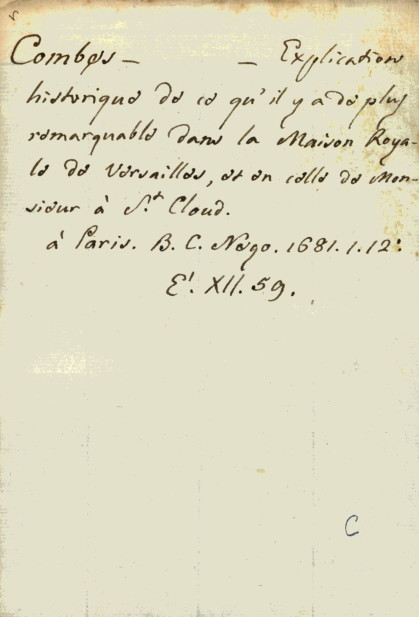 Combes – – Explication
historique de ce qu'il y a de plus
remarquable dans la Maison Roya-
le de Versailles, et en celle de Mon-
sieur à S.t Cloud.
à Paris. B. C. Nego. 1681. 1. 12.
E'. XII. 59.
C